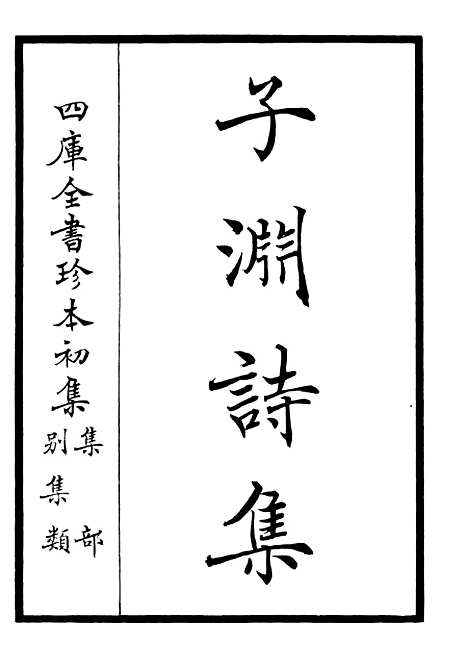 子淵詩集
四庫全書珍本初集
集部
别集類